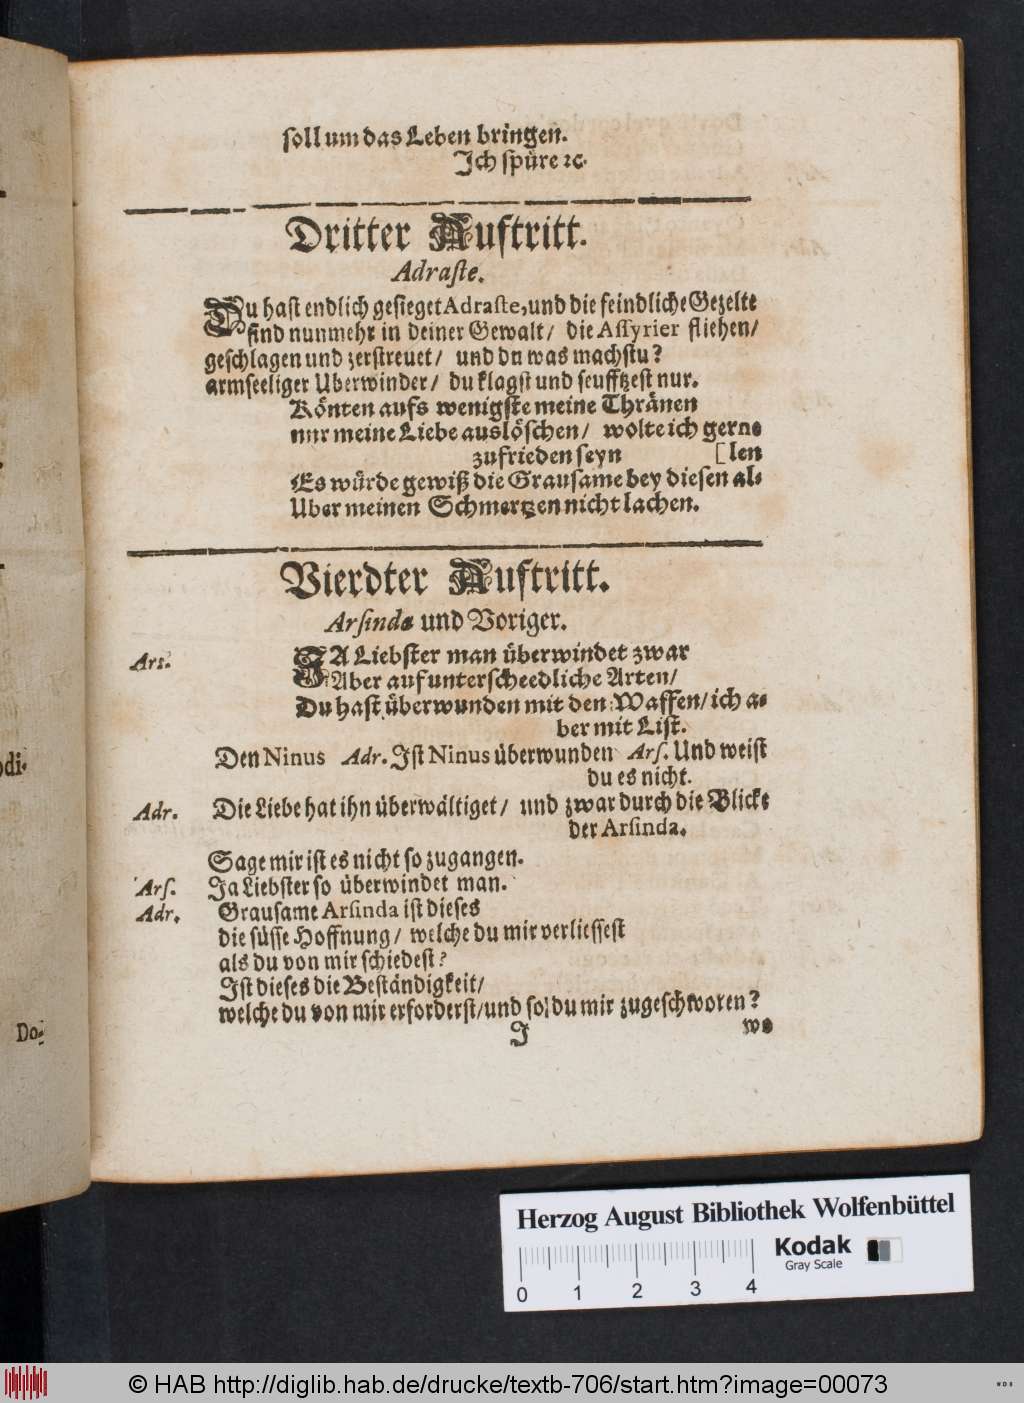 soll um das Leben bringen.
Ich spüre ꝛc.
Dritter Auftritt.
Adraste.
Du hast endlich gesieget Adraste, und die feindliche Gezelte
sind nunmehr in deiner Gewalt/ die Assyrier fliehen/
geschlagen und zerstreuet/ und du was machstu?
armseeliger Uberwinder/ du klagst und seufftzest nur.
Könten aufs wenigste meine Thränen
nur meine Liebe auslöschen/ wolte ich gerne
zufrieden seyn [len
Es würde gewiß die Grausame bey diesen al-
Uber meinen Schmertzen nicht lachen.
Vierdter Auftritt.
Arsinde und Voriger.
Ars. JA Liebster man überwindet zwar
Aber auf unterscheedliche Arten/
Du hast überwunden mit den Waffen/ ich a-
ber mit List.
Den Ninus Adr. Ist Ninus überwunden Ars. Und weist
du es nicht.
Adr. Die Liebe hat ihn überwältiget/ und zwar durch die Blicke
der Arsinda.
Sage mir ist es nicht so zugangen.
Ars. Ja Liebster so überwindet man.
Adr. Grausame Arsinda ist dieses
die süsse Hoffnung/ welche du mir verliessest
als du von mir schiedest?
Ist dieses die Beständigkeit/
welche du von mir erforderst/ und so du mir zugeschworen?
J wo
odi-
Do-
Herzog August Bibliothek Wolfenbüttel
Kodak
Gray Scale
0 1 2 3 4
© HAB http://diglib.hab.de/drucke/textb-706/start.htm?image=00073